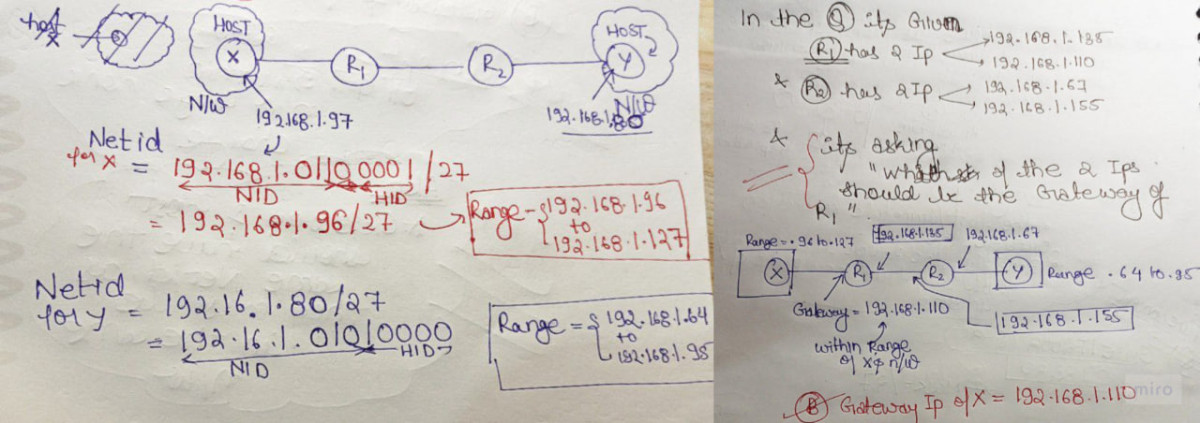 HOST
HOST
X
R1
R2
Y
N/W
N/W
192.168.1.97
192.168.1.80
Net id
for X = 192.168.1.01100001/27
NID
HID
= 192.168.1.96/27
Range - 192.168.1.96
to
192.168.1.127
Net id
for y = 192.16.1.80/27
= 192.16.1.01010000
NID
HID
Range = 192.168.1.64
to
192.168.1.95
In the Q its Given
R1 has 2 Ip
192.168.1.135
192.168.1.110
& R2 has 2 IP
192.168.1.67
192.168.1.155
& its asking
"which of the 2 Ips
should be the Gateway of
R1".
Range = .96 to .127
192.168.1.135
192.168.1.67
X
R1
R2
Y
Range .64 to .95
Gateway = 192.168.1.110
192.168.1.155
within Range
of X n/w
B Gateway Ip of X = 192.168.1.110
miro